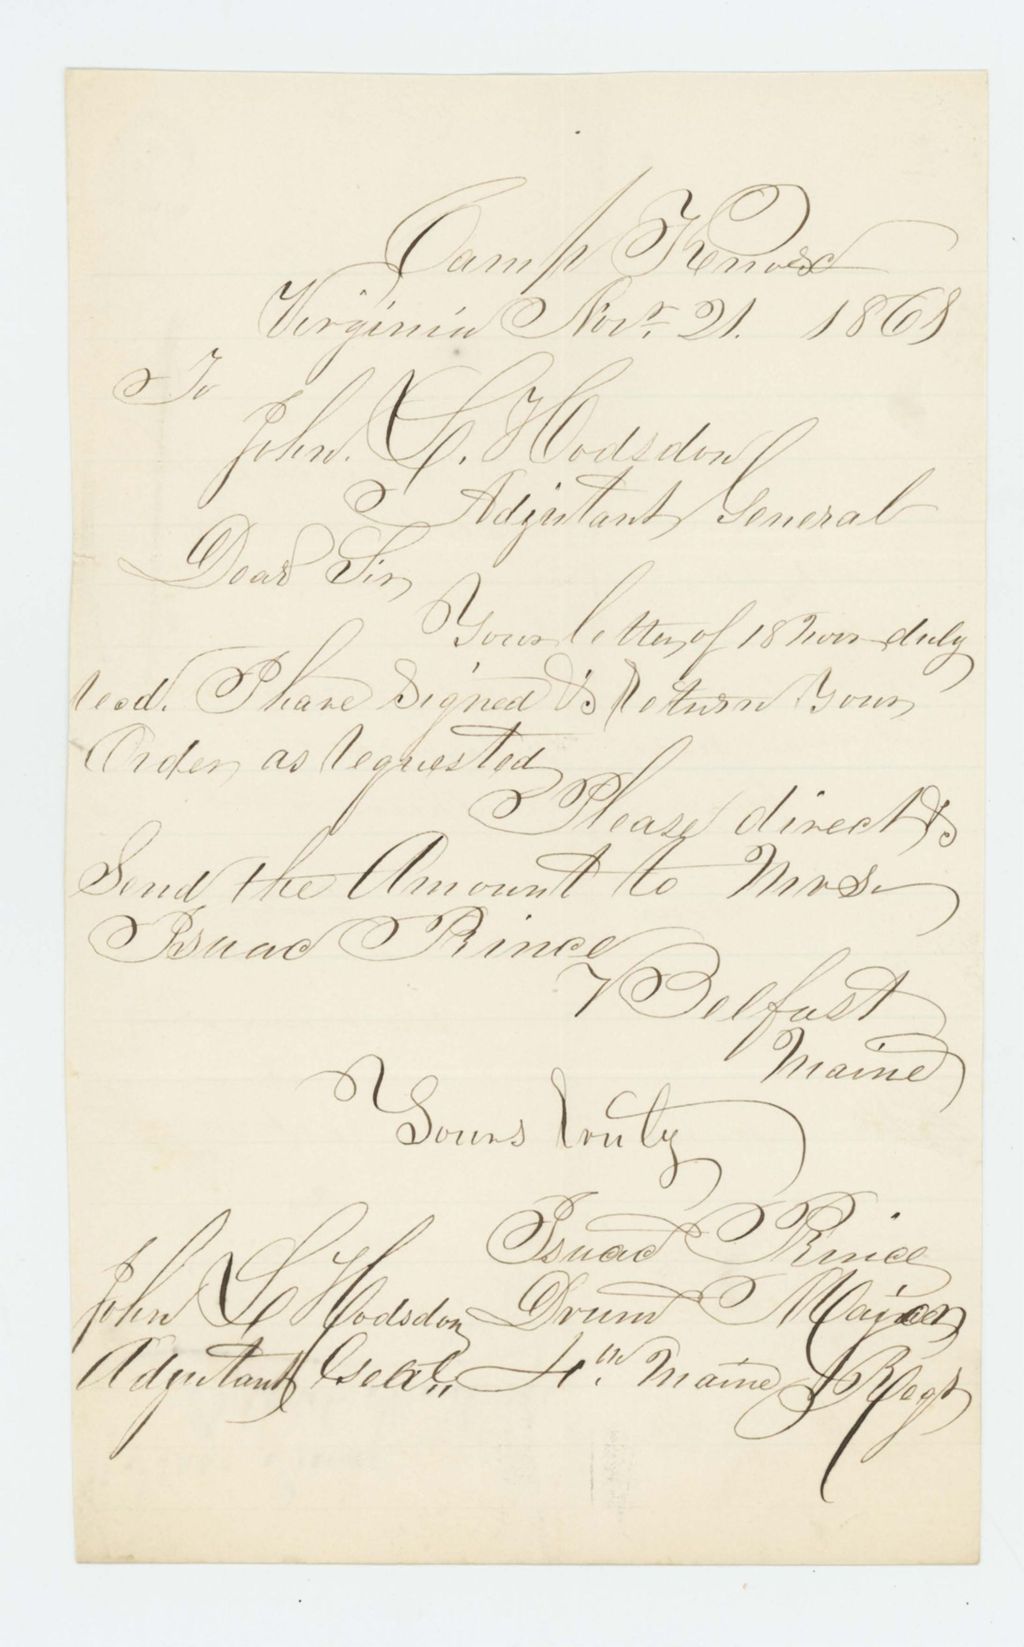 Camp Knox
Virginia Novr. 21. 1861
To
John. L. Hodsdon
Adjutant General
Dear Sir
Your letter of 18 Nov duly
recd. I have Signed & return Your
Order, as requested
Please direct &
Send the Amount to Mrs.
Isaac Prince
Belfast
Maine
Yours truly
Isaac Prince
John L Hodsdon Drum Major
Adjutant Genl. 4th. Maine Regt